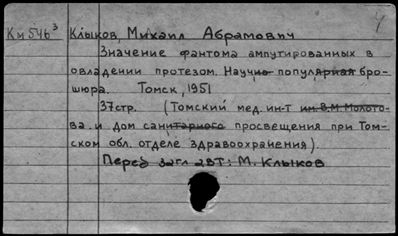 Км 546³ Клыков, Михаил Абрамович
Значение фантома ампутированных в
овладении протезом. Научно популярная бро-
шюра. Томск, 1951
37стр. (Томский мед. ин-т им. В.М. Молото-
ва и Дом санитарного просвещения при Том-
ском обл. отделе здравоохранения).
Перед загл авт: М. Клыков